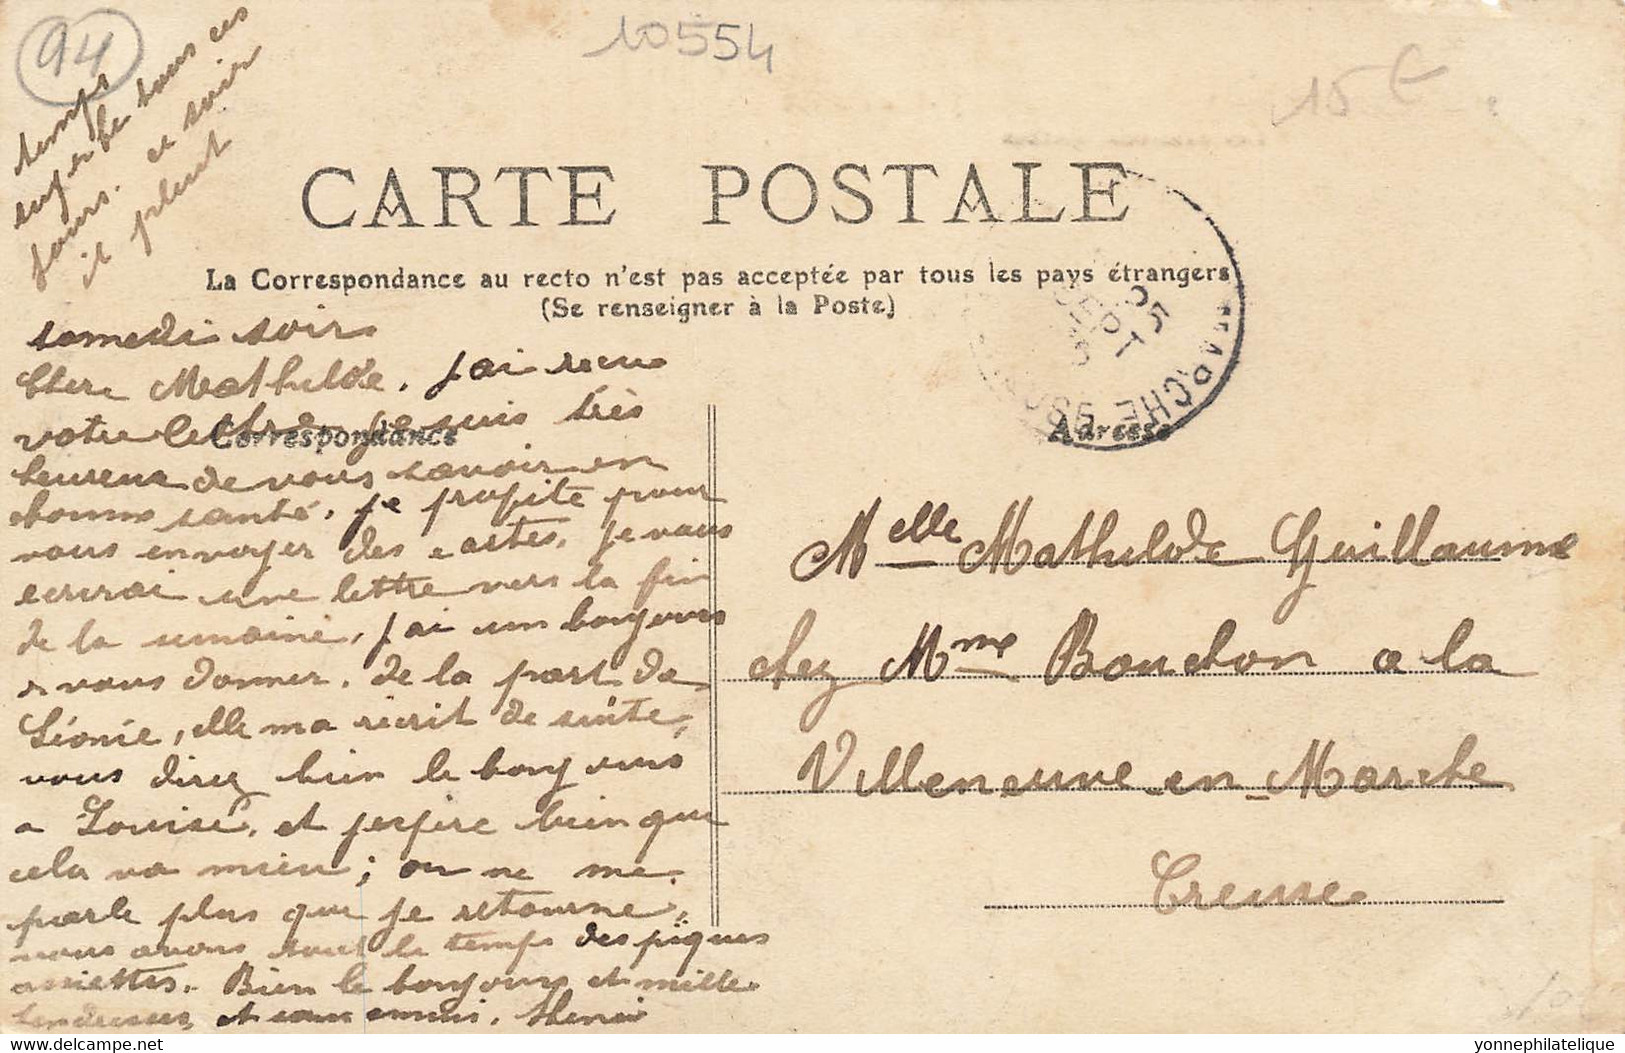 94
10554
15 €
temps
superbe tous ces
jours. ce soir
il pleut
CARTE POSTALE
La Correspondance au recto n'est pas acceptée par tous les pays étrangers
(Se renseigner à la Poste)
SEPT
MARCHE
samedi soir
Chère Mathilde, j'ai recu
votre lettre je suis très
Correspondance
Adresse
heureux de vous savoir en
bonne santé, je profite pour
vous envoyer des cartes, je vous
ecrirai une lettre vers la fin
de la semaine, j'ai un bonjours
a vous donner, de la part de
Léonie, elle ma récrit de suite,
vous direz bien le bonjours
a Louise, et j'espère bien que
cela va mieu; on ne me
parle plus que je retourne,
vous avons tout le temps des piques
assiettes. Bien le bonjours et mille
tendresses, et sans ennui. Henri
Melle Mathilde Guillaume
chez Mme Bouchon a la
Villeneuve-en-Marche
Creuse
delcampe.net
yonnephilatelique